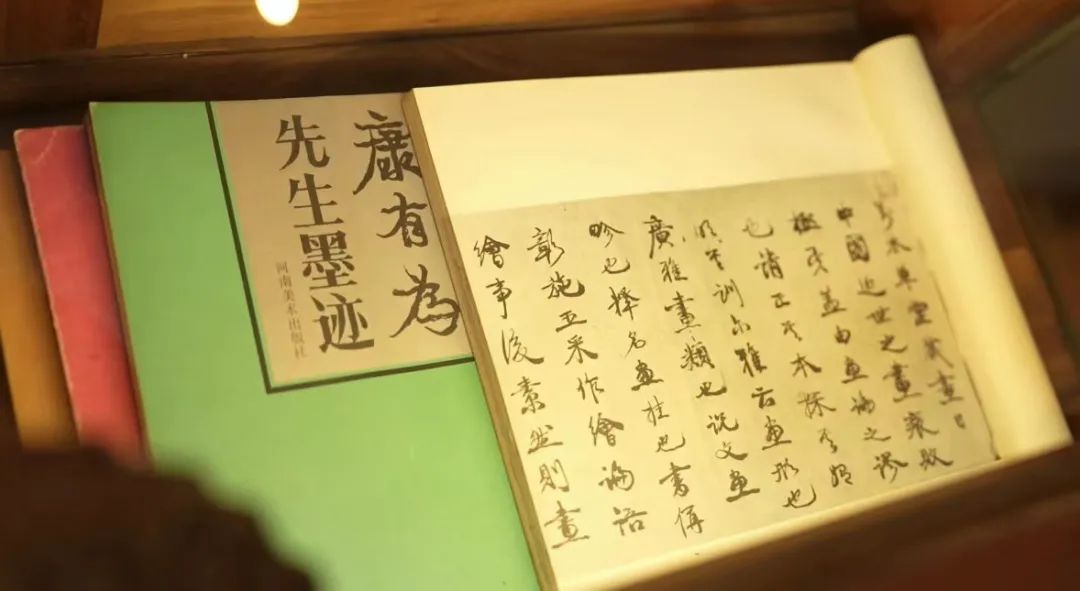 康有為
先生墨迹
河南美术出版社
木草堂藏畫目
中國近世之畫衰敗
極矣蓋由畫論之謬
也請正其本探其始
明其訓尔雅云畫形也
廣雅畫類也說文畫
畛也釋名畫挂也書偁
彰施五采作繪論語
繪事後素然則畫